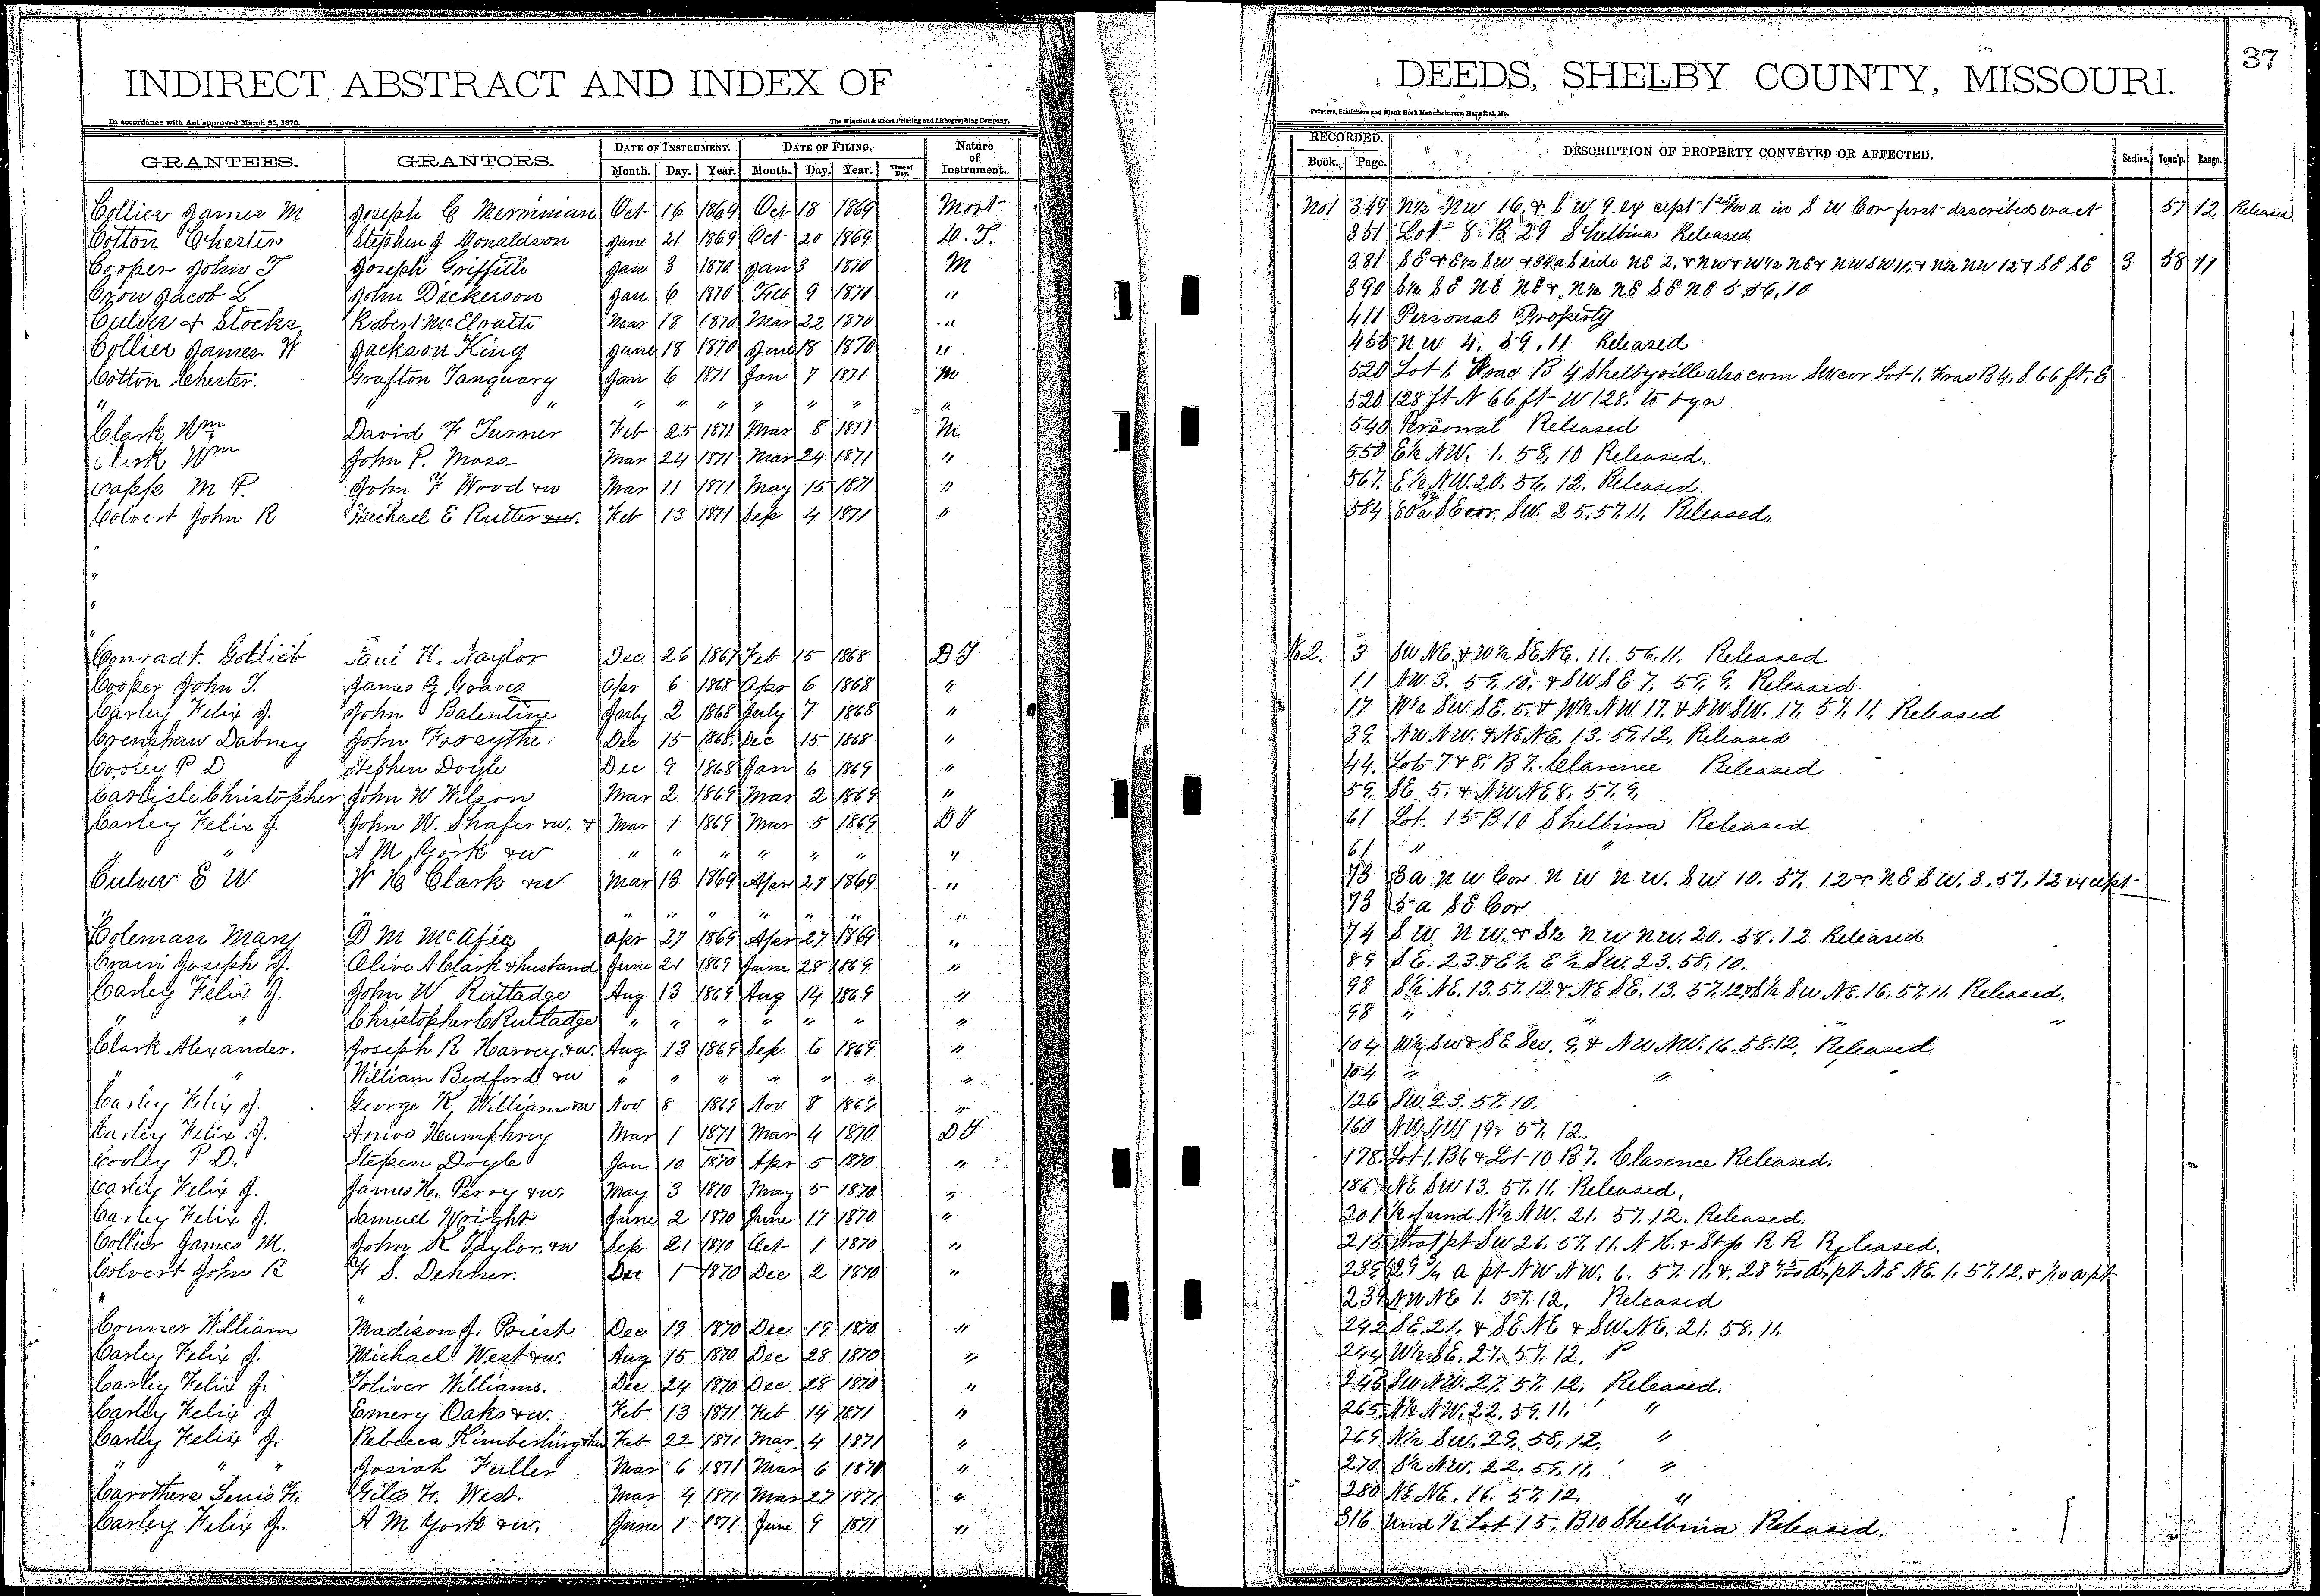 INDIRECT ABSTRACT AND INDEX OF
In accordance with Act approved March 25, 1870. The Winchell & Ebert Printing and Lithographing Company,
GRANTEES. GRANTORS. DATE OF INSTRUMENT. DATE OF FILING. Nature of Instrument.
Month. Day. Year. Month. Day. Year. Time of Day.
Collier James M Joseph C Merriman Oct 16 1869 Oct 18 1869 Mort
Cotton Chester Stephen J Donaldson June 21 1869 Oct 20 1869 D. T.
Cooper John T Joseph Griffith Jan 3 1870 Jan 3 1870 M
Crow Jacob L John Dickerson Jan 6 1870 Feb 9 1870 "
Culver & Stocks Robert McElrath Mar 18 1870 Mar 22 1870 "
Collier James W Jackson King June 18 1870 June 18 1870 "
Cotton Chester. Grafton Tanquary Jan 6 1871 Jan 7 1871 M
" " " " " " " " "
Clark Wm David F Turner Feb 25 1871 Mar 8 1871 M
Clark Wm John P. Moss Mar 24 1871 Mar 24 1871 "
Capps M P. John F Wood & w Mar 11 1871 May 15 1871 "
Colvert John R Michael E Rutter & w. Feb 13 1871 Sep 4 1871 "
"
"
"
Conradt. Gotlieb Paul H. Naylor Dec 26 1867 Feb 15 1868 D T
Cooper John T. James G Graves Apr 6 1868 Apr 6 1868 "
Carley Felix J. John Balentine July 2 1868 July 7 1868 "
Crenshaw Dabney John Forsythe. Dec 15 1868. Dec 15 1868 "
Cooley P D Stephen Doyle Dec 9 1868 Jan 6 1869 "
Carlisle Christopher John W Wilson Mar 2 1869 Mar 2 1869 "
Carley Felix J. John W. Shafer & w. & Mar 1 1869 Mar 5 1869 D T
" " A M York & w " " " " " " "
Culver E W W H Clark & w Mar 13 1869 Apr 27 1869 "
" " " " " " " " "
Coleman Mary D M McAfee Apr 27 1869 Apr 27 1869 "
Crain Joseph S. Olive A Clark & husband June 21 1869 June 28 1869 "
Carley Felix J. John W Rutladge Aug 13 1869 Aug 14 1869 "
" " Christopher C Rutladge " " " " " " "
Clark Alexander. Joseph R Harvey. & w. Aug 13 1869 Sep 6 1869 "
" " William Bedford & w " " " " " " "
Carley Felix J. George K, Williams & w Nov 8 1869 Nov 8 1869 "
Carley Felix J. Humphrey Mar 1 1871 Mar 4 1870 D T
Cooley P D. Stephen Doyle Jan 10 1870 Apr 5 1870 "
Carley Felix J. James H. Perry & w. May 3 1870 May 5 1870 "
Carley Felix J. Samuel Wright June 2 1870 June 17 1870 "
Collier James M. John R Taylor. & w Sep 21 1870 Oct 1 1870 "
Colvert John R F S. Dehner. Dec 1 1870 Dec 2 1870 "
" "
Conner William Madison J. Priest Dec 19 1870 Dec 19 1870 "
Carley Felix J. Michael West & w. Aug 15 1870 Dec 28 1870 "
Carley Felix J. Toliver Williams. Dec 24 1870 Dec 28 1870 "
Carley Felix J Emery Oaks & w. Feb 13 1871 Feb 14 1871 "
Carley Felix J. Rebecca Kimberling Feb 22 1871 Mar. 4 1871 "
" " " Josiah Fuller Mar 6 1871 Mar 6 1871 "
Carothers Lewis H. Giles H. West. Mar 9 1871 Mar 27 1871 "
Carley Felix J. A M York & w. June 1 1871 June 9 1871 "
37
DEEDS, SHELBY COUNTY, MISSOURI.
Printers, Stationers and Blank Book Manufacturers, Hannibal, Mo.
RECORDED. DESCRIPTION OF PROPERTY CONVEYED OR AFFECTED. Section. Town'p. Range.
Book. Page.
No1 349 N½ NW 16. & S W 9 ex cept 1 25/100 a in S W Cor first described tract 57 12 Released
351 Lot 8. B 29 Shelbina Released
381 SE & E½ SW & S side NE 2. & NW & W½ NE & NW SW 11, & N½ NW 12 & SE SE 3 58 11
390 S½ SE NE NE & N½ NE SE NE 5. 56, 10
411 Personal Property
455 NW 4. 59, 11 Released
520 Lot 1. Frac B 4 Shelbyville also com SW cor Lot 1. Frac B 4. S 66 ft. E
520 128 ft N 66 ft W 128. to bgn
540 Personal Released
550 E½ NW. 1. 58, 10 Released.
567. E½ NW. 20. 56, 12. Released.
584 80 a SE cor. SW. 25. 57. 11, Released.
No 2. 3 SW NE. & W½ SE NE. 11. 56. 11. Released
11 NW 3. 59, 10. & SW SE 7. 59, 9, Released.
17 W½ SW. SE. 5. & W½ NW 17. & NW SW. 17. 57. 11, Released
39. NW NW. & NE NE. 13. 59. 12, Released
44. Lots 7 & 8. B 7. Clarence Released
59. SE 5. & NW NE 8. 57. 9,
61 Lot. 15 B 10 Shelbina Released
61 " "
73 3 a NW Cor NW NW. SW 10. 57. 12 & NE SW. 3. 57. 12 except
73 5 a SE Cor
74 SW NW. & S½ NW NW. 20. 58. 12 Released
89 SE. 23. & E½ E½ SW. 23. 58, 10.
98 S½ NE. 13. 57. 12 & NE SE. 13. 57. 12 & S½ SW NE. 16. 57. 11. Released.
98 " " "
104 W½ SW & SE SW. 9, & NW NW. 16. 58. 12. Released
104 " " "
126 SW. 23. 57. 10.
160 NW NW 19. 57. 12.
178. Lot 1. B 6 & Lot 10 B 7. Clarence Released.
186 NE SW 13. 57. 11. Released.
201 ½ of und N½ NW. 21. 57. 12. Released.
215 pt SW 26. 57. 11. N H. & St Jo R R Released.
239 29 ¾ a pt NW NW. 6. 57. 11. & 28 a. pt NE NE. 1. 57. 12. & 1/10 a pt
239 NW NE 1. 57. 12. Released
242 SE. 21. & SE NE & SW NE. 21. 58. 11.
244 W½ SE. 27. 57. 12. P
245 SW NW. 27. 57. 12, Released.
265. N½ NW. 22. 59. 11. "
269 N½ SW. 29. 58, 12. "
270 S½ NW. 22. 59. 11. "
280 NE NE. 16. 57. 12. "
316 und ½ Lot 15. B 10 Shelbina Released.